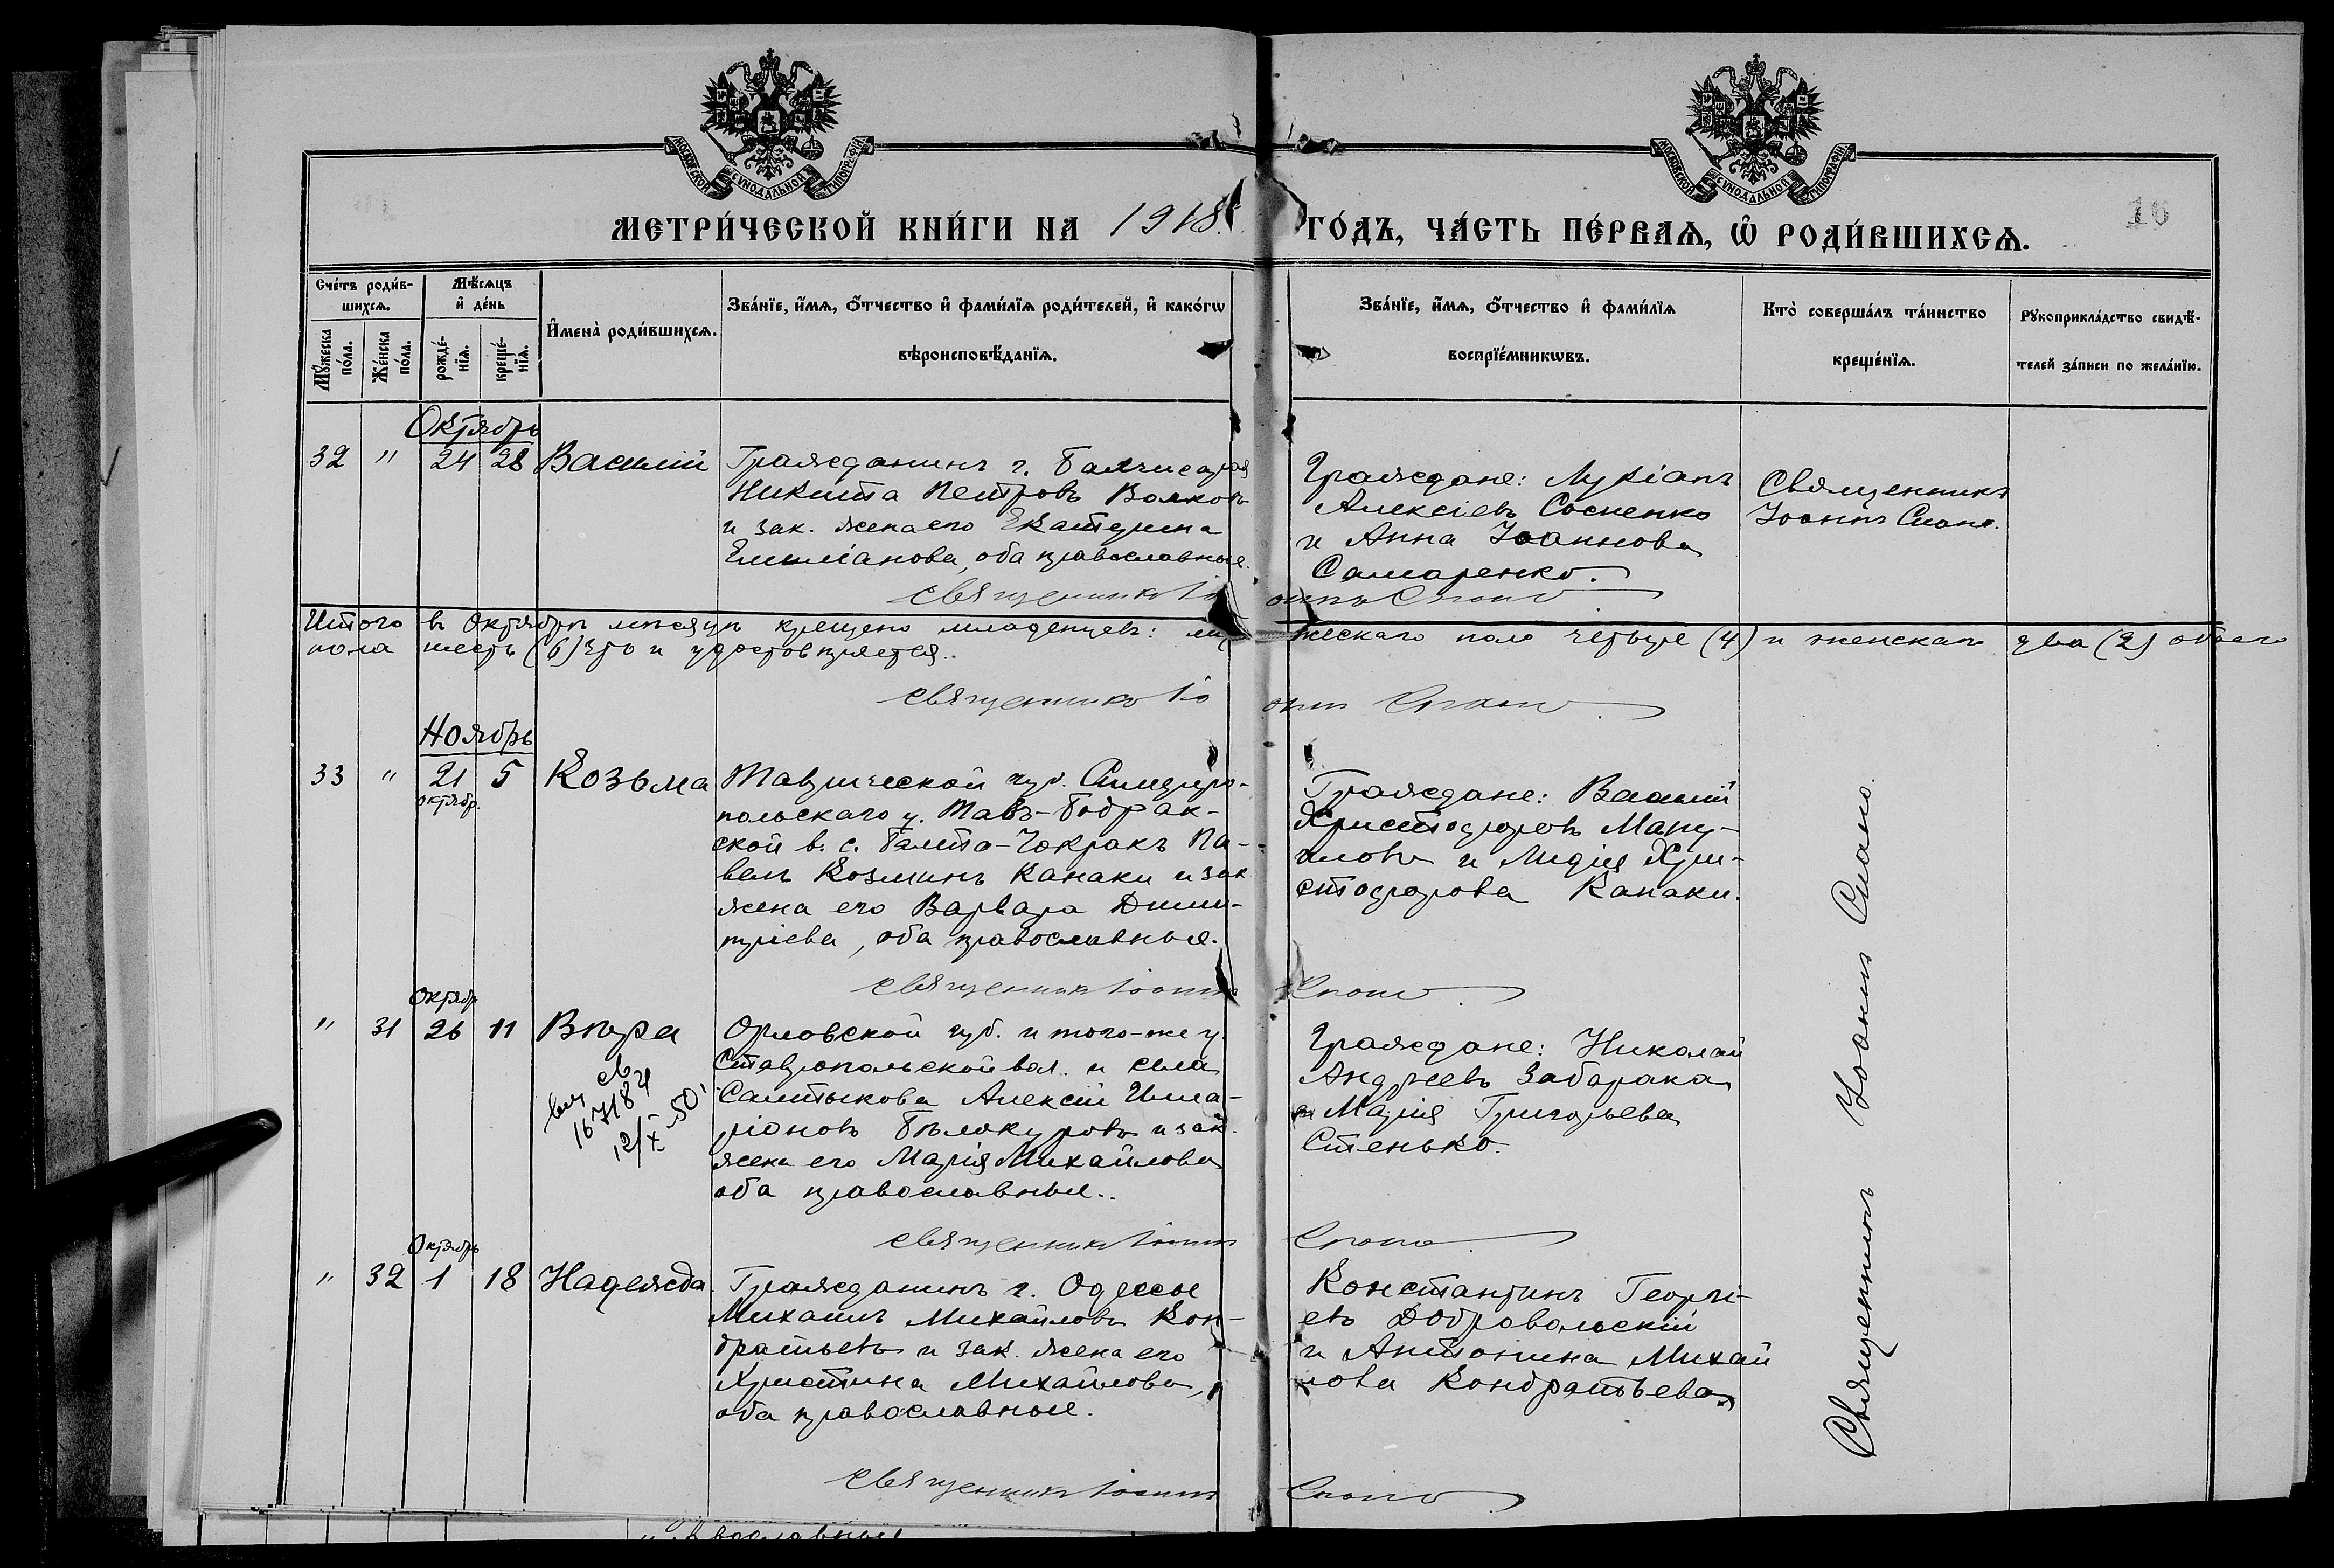 МОСКОВСКОЙ СѴНОДАЛЬНОЙ ТИПОГРАФІИ
МОСКОВСКОЙ СѴНОДАЛЬНОЙ ТИПОГРАФІИ
МЕТРИ́ЧЕСКОЙ КНИ́ГИ НА 1918
ГО́ДЪ, ЧА́СТЬ ПЕ́РВАѦ, Ѡ РОДИ́ВШИХСѦ.
16
Сче́тъ роди́в-
шихсѧ.
Мꙋ́жеска
по́ла.
Же́нска
по́ла.
Мѣ́сѧцъ
и҆ де́нь
рожде́-
нїѧ.
креще́-
нїѧ.
И҆мена̀ роди́вшихсѧ.
Зва́нїе, и҆́мѧ, ѻ҆́тчество и҆ фами́лїѧ роди́телей, и҆ како́гѡ
вѣроисповѣ́данїѧ.
Зва́нїе, и҆́мѧ, ѻ҆́тчество и҆ фами́лїѧ
воспрїе́мникѡвъ.
Кто̀ соверша́лъ та́инство
креще́нїѧ.
Рꙋкоприкла́дство свидѣ́-
телей за́писи по жела́нїю.
Октябрь
32 " 24 28 Василій
Гражданинъ г. Бахчисарая
Никита Петровъ Волковъ
и зак. жена его Екатерина
Емиліанова, оба православные.
Граждане: Лукіанъ
Алексіевъ Сосненко
и Анна Іоаннова
Самаренко.
Священникъ
Іоаннъ Спано.
Священникъ Іоаннъ Спано
Итого въ Октябрѣ мѣсяцѣ крещено младенцевъ: мужескаго пола четыре (4) и женскаго два (2) обоего
пола шесть (6) что и удостовѣряется..
Священникъ Іоаннъ Спано
Ноябрь
33 " 21 5 Козьма
октябр.
Таврической губ. Симферо-
польскаго у. Тавъ-Бодрак-
ской в. с. Балта-Чокракъ Па-
велъ Козминъ Канаки и зак.
жена его Варвара Дими-
тріева, оба православные.
Граждане: Василій
Христофоровъ Ману-
иловъ и Лидія Хри-
стофорова Канаки.
Священникъ Іоаннъ Спано
Октябр
" 31 26 11 Вѣра
св
16 7184
12/X-50
Орловской губ. и того-же у.
Ставропольской вол. и села
Салтыкова Алексій Илла-
ріоновъ Бѣлокуровъ и зак.
жена его Марія Михайлова
оба православные..
Граждане: Николай
Андреевъ Забарака
и Марія Григорьева
Стенько.
Священникъ Іоаннъ Спано
Октябрь
" 32 1 18 Надежда.
Гражданинъ г. Одессы
Михаилъ Михайловъ Кон-
дратьевъ и зак. жена его
Христина Михайлова,
оба православные.
Константинъ Георгі-
евъ Добровольскій
и Антонина Михай
лова Кондратьева
Священникъ Іоаннъ Спано
Священникъ Іоаннъ Спано.
православные